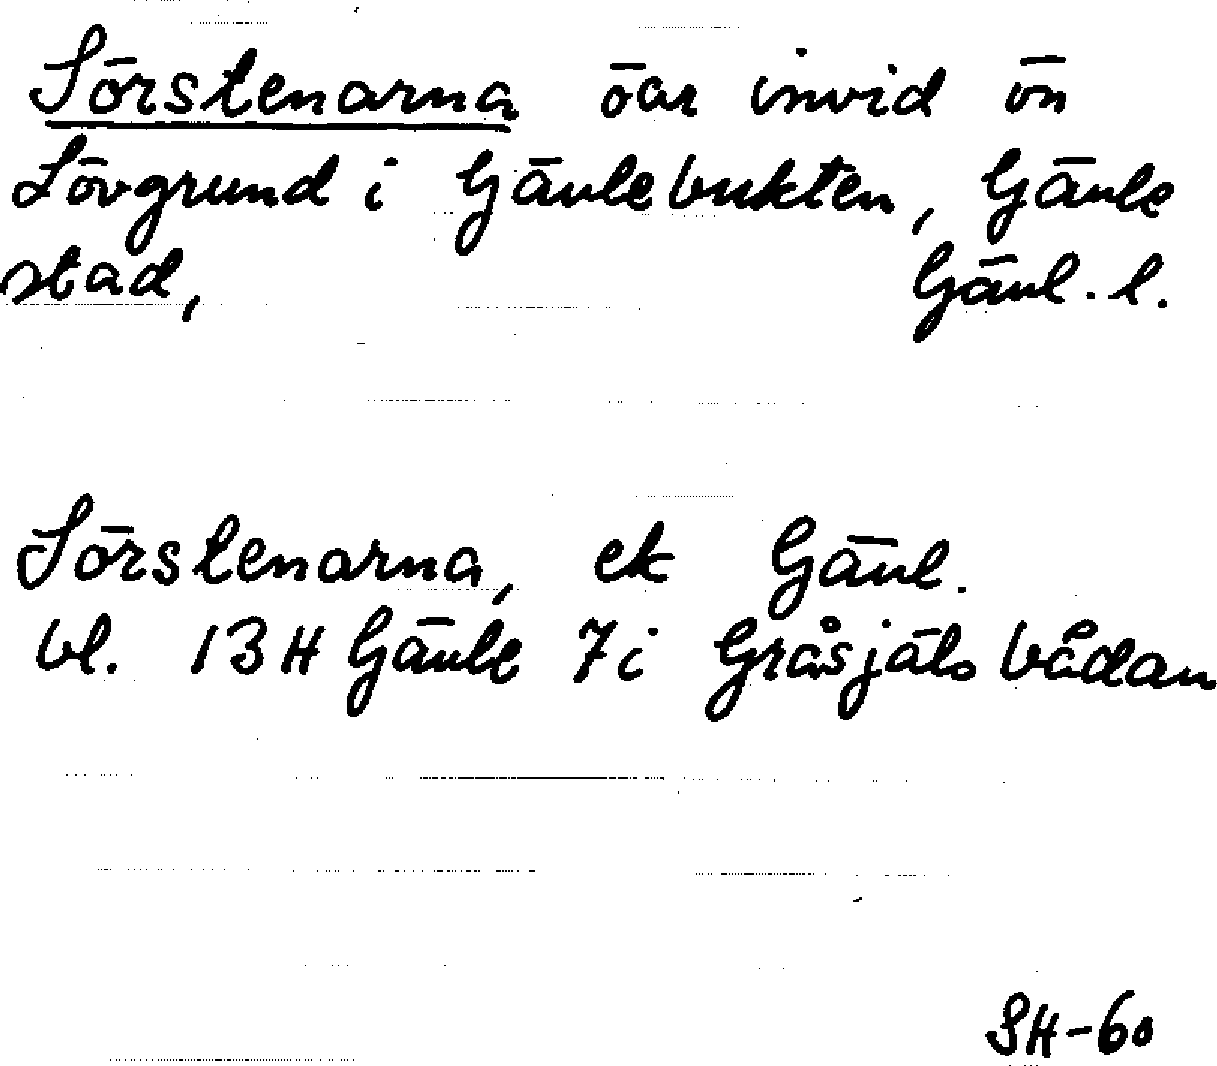 Sörstenarna öar invid ön
Lövgrund i Gävlebukten, Gävle
stad, Gävl. l.
Sörstenarna, ek Gävl.
bl. 13H Gävle 7i Gråsjälsbådan
SH-60